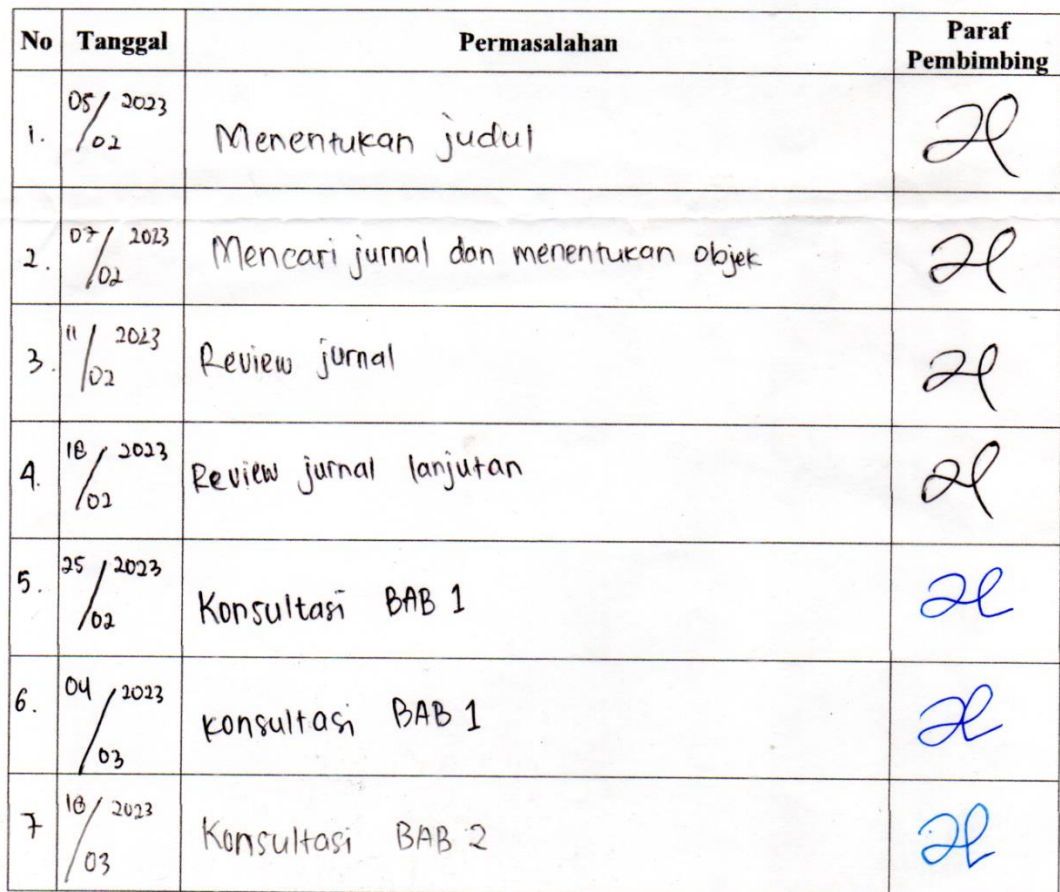 No Tanggal Permasalahan Paraf
Pembimbing
1. 05/02 2023 Menentukan judul
2. 07/02 2023 Mencari jurnal dan menentukan objek
3. 11/02 2023 Review jurnal
4. 18/02 2023 Review jurnal lanjutan
5. 25/02 2023 Konsultasi BAB 1
6. 04/03 2023 Konsultasi BAB 1
7 18/03 2023 Konsultasi BAB 2